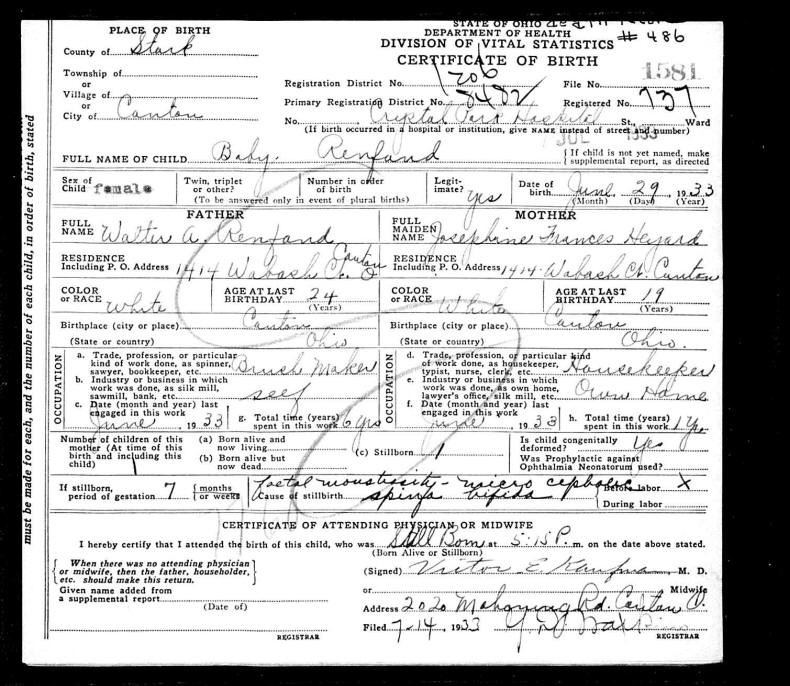 STATE OF OHIO death Record
PLACE OF BIRTH
DEPARTMENT OF HEALTH # 486
County of Stark
DIVISION OF VITAL STATISTICS
CERTIFICATE OF BIRTH
Township of
or
Village of
or
City of Canton
Registration District No. 1206 File No. 1581
Primary Registration District No. 8482 Registered No. 737
No. Crystal Park Hospital St., Ward
(If birth occurred in a hospital or institution, give NAME instead of street and number)
JUL 1933
FULL NAME OF CHILD Baby. Renfand { If child is not yet named, make
supplemental report, as directed
Sex of
Child female
Twin, triplet
or other?
Number in order
of birth
(To be answered only in event of plural births)
Legit-
imate? Yes
Date of
birth June 29, 1933
(Month) (Day) (Year)
FATHER
FULL
NAME Walter A. Renfand
MOTHER
FULL
MAIDEN
NAME Josephine Frances Heyard
RESIDENCE
Including P. O. Address 1414 Wabash Ct. Canton O
RESIDENCE
Including P. O. Address 1414 Wabash Ct. Canton
COLOR
or RACE White
AGE AT LAST
BIRTHDAY 24
(Years)
COLOR
or RACE White
AGE AT LAST
BIRTHDAY 19
(Years)
Birthplace (city or place) Canton
(State or country) Ohio
Birthplace (city or place) Canton
(State or country) Ohio.
OCCUPATION
a. Trade, profession, or particular
kind of work done, as spinner,
sawyer, bookkeeper, etc. Brush Maker
b. Industry or business in which
work was done, as silk mill,
sawmill, bank, etc. self
c. Date (month and year) last
engaged in this work
June, 1933
g. Total time (years)
spent in this work 6 yrs
OCCUPATION
d. Trade, profession, or particular kind
of work done, as housekeeper,
typist, nurse, clerk, etc. Housekeeper
e. Industry or business in which
work was done, as own home,
lawyer's office, silk mill, etc. Own Home
f. Date (month and year) last
engaged in this work
June, 1933
h. Total time (years)
spent in this work 1 Yr.
Number of children of this
mother (At time of this
birth and including this
child)
(a) Born alive and
now living
(b) Born alive but
now dead
(c) Stillborn 1
Is child congenitally
deformed? Yes
Was Prophylactic against
Ophthalmia Neonatorum used?
If stillborn,
period of gestation 7 { months
or weeks
Cause of stillbirth Foetal monstrosity - micro cephalic
spina bifida
Before labor X
During labor
CERTIFICATE OF ATTENDING PHYSICIAN OR MIDWIFE
I hereby certify that I attended the birth of this child, who was Still Born at 5:15 P. m. on the date above stated.
(Born Alive or Stillborn)
{ When there was no attending physician
or midwife, then the father, householder,
etc. should make this return. }
(Signed) Victor E. Kaufman M. D.
Given name added from
a supplemental report
(Date of)
or Midwife
Address 2020 Mahoning Rd. Canton O.
Filed 7-14, 1933
REGISTRAR
REGISTRAR
must be made for each, and the number of each child, in order of birth, stated